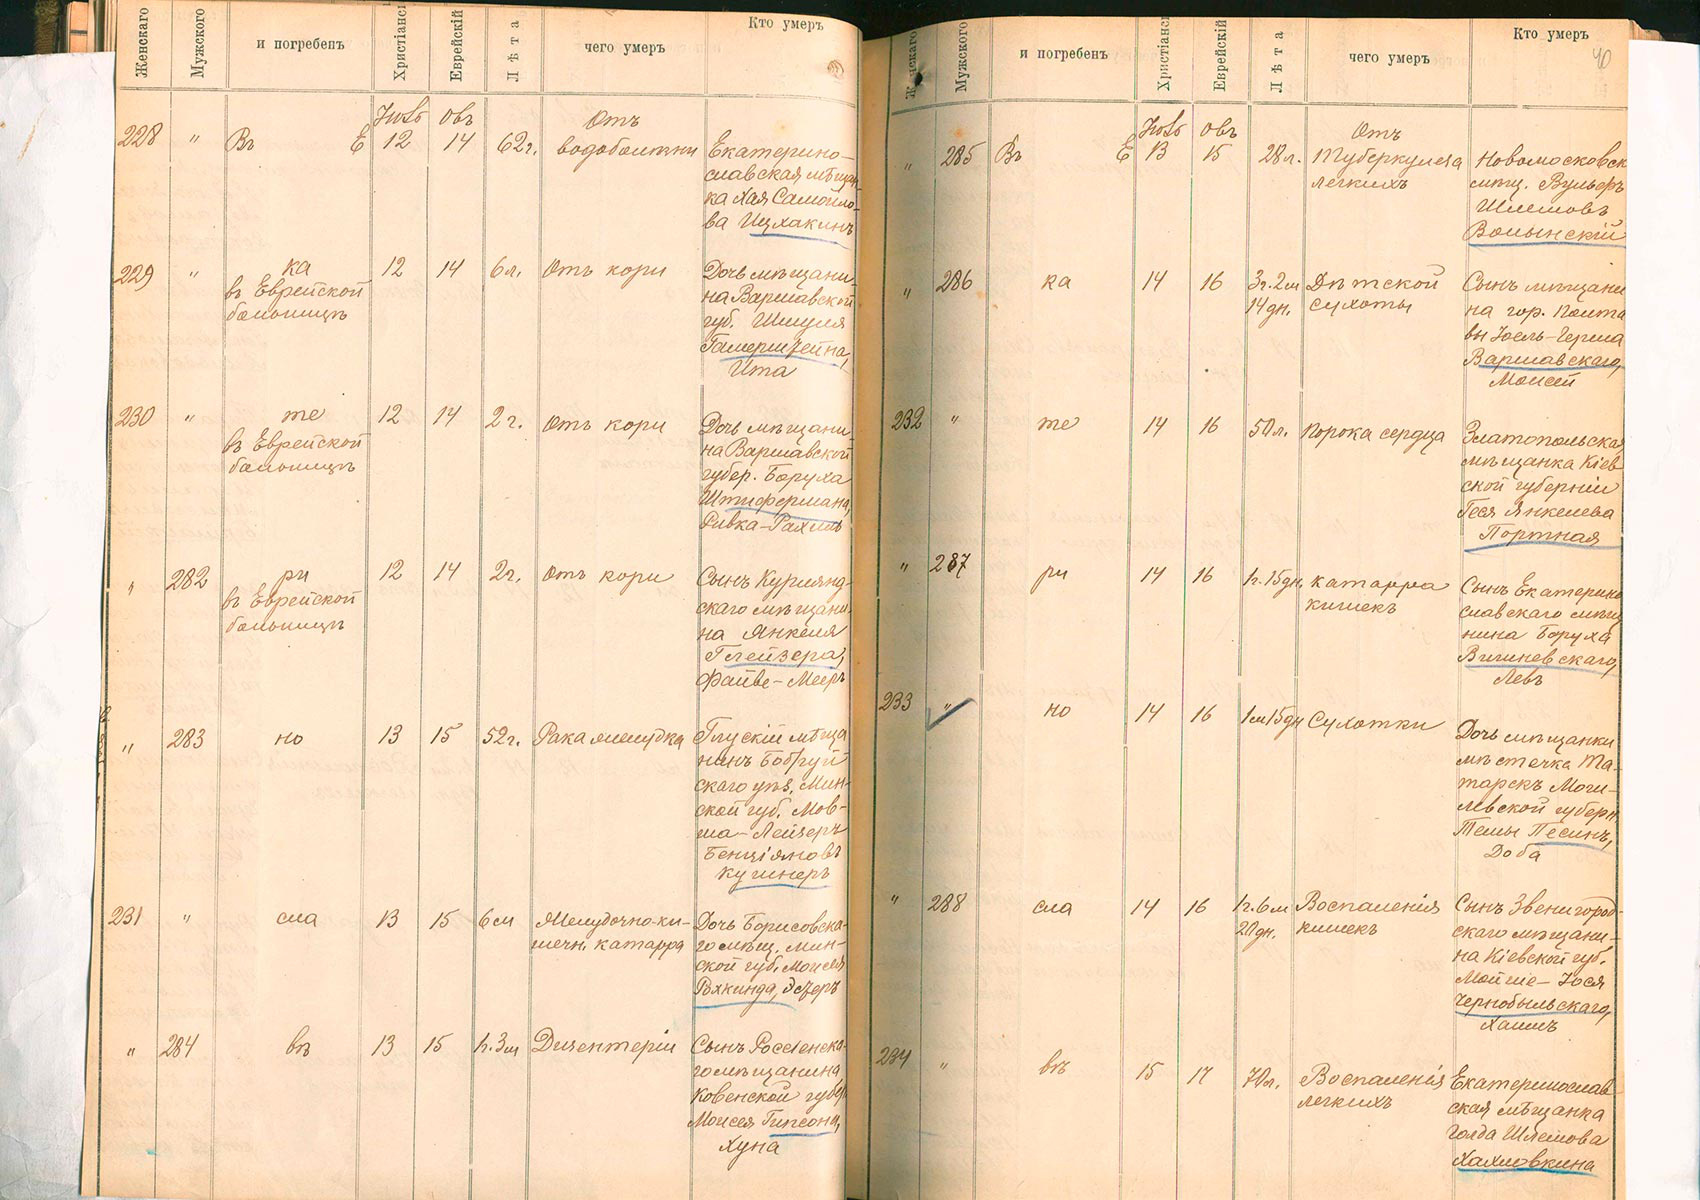 Женскаго
Мужского
и погребенъ
Христіанскій
Еврейскій
Лѣта
чего умеръ
Кто умеръ
228 " Въ Е 12 14 62г. Отъ
водобоязни
Екатерино-
славская мѣщан-
ка Хая Самойло-
ва Ицхакинъ
229 " ка 12 14 6л. Отъ кори
въ Еврейской
больницѣ
Дочь мѣщани-
на Варшавской
губ. Шмуля
Ита
230 " те 12 14 2г. Отъ кори
въ Еврейской
больницѣ
Дочь мѣщани-
на Варшавской
губер. Боруха
Штифермана,
Ривка-Рахиль
" 282 ри 12 14 2г. Отъ кори
въ Еврейской
больницѣ
Сынъ Курлянд-
скаго мѣщани-
на Янкеля
Глейзера,
Файве-Мееръ
" 283 но 13 15 52г. Рака желудка
Глускій мѣща
нинъ Бобруй
скаго уѣз. Мин-
ской губ. Мов-
ша-Лейзеръ
Бенціановъ
Кушнеръ
231 " сла 13 15 6м Желудочно-ки-
шечн. катарра
Дочь Борисовска-
го мѣщ. Мин-
ской губ. Моисея
Рыкинда,
" 284 въ 13 15 1г.3м Дизентеріи
Сынъ Россіенска-
го мѣщанина
Ковенской губер.
Моисея Гипсона,
Хуна
Женскаго
Мужского
и погребенъ
Христіанскій
Еврейскій
Лѣта
чего умеръ
Кто умеръ
40
" 285 Въ Е 13 15 28л. Отъ
Туберкулеза
легкихъ
Новомосковск
мѣщ. Вульфъ
Шлемовъ
Волынскій
" 286 ка 14 16 3г.2м
14дн.
Дѣтской
сухоты
Сынъ мѣщани
на гор. Полта
вы Іоель-Герша
Варшавскаго,
Моисей
232 " те 14 16 50л. Порока сердца
Златопольская
мѣщанка Кіев
ской губерніи
Геся Янкелева
Портная
" 287 ри 14 16 1г.15дн. катарра
кишекъ
Сынъ Екатерино
славскаго мѣщ
нина Боруха
Вишневскаго,
Левъ
233 " но 14 16 1м15дн Сухотки
Дочь мѣщанки
мѣстечка Та-
тарскъ Моги-
левской губерн.
Темы Песинъ,
Доба
" 288 сла 14 16 1г.6м
20дн.
Воспаленія
кишекъ
Сынъ Звенигород-
скаго мѣщани-
на Кіевской губ.
Мойше-Іося
Чернобыльскаго,
Хаимъ
234 " въ 15 17 70л. Воспаленія
легкихъ
Екатеринослав
ская мѣщанка
Голда Шлемова
Хахловкина